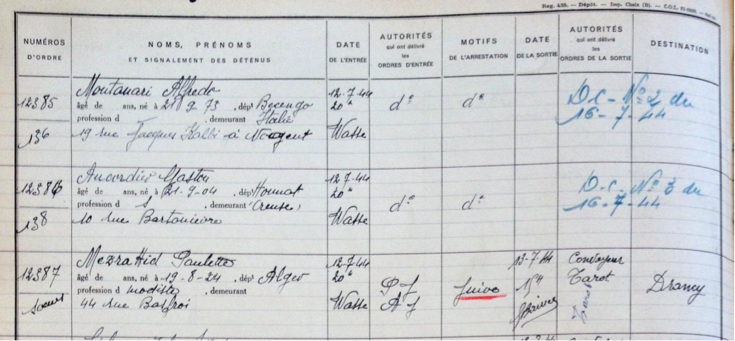 Reg. 439. - Dépôt. - Imp. Chaix (B).
NUMÉROS D'ORDRE
NOMS, PRÉNOMS
ET SIGNALEMENT DES DÉTENUS
DATE DE L'ENTRÉE
AUTORITÉS qui ont délivré les ORDRES D'ENTRÉE
MOTIFS DE L'ARRESTATION
DATE DE LA SORTIE
AUTORITÉS qui ont délivré les ORDRES DE LA SORTIE
DESTINATION
12385
136
Montanari Alfredo
âgé de ans, né à 9-73, dépt
profession d , demeurant Italie
19 rue Jacques à Nogent
12-7-44
20h
Wasse
d° d°
D.C- N° 2 du
16-7-44
12386
138
Gaston
âgé de ans, né à 21-9-04, dépt
profession d , demeurant (Creuse)
10 rue
12-7-44
20h
Wasse
d° d°
D.C- N° 3 du
16-7-44
12387
Mezrahid Paulette
âgé de ans, né à 19-8-24, dépt Alger
profession d modiste , demeurant
44 rue Basfroi
12-7-44
20h
Wasse
P J
A J
Juive
13-7-44
15h
Convoyeur
Tarot
Drancy